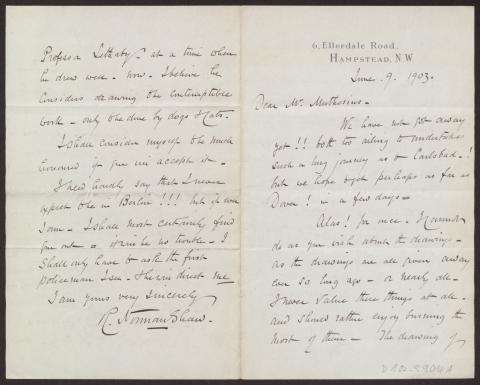 6, Ellerdale Road,
HAMPSTEAD, N.W.
June. 9. 1903.
Dear Mr. Muthesius -
We have not got away
yet!! both too ailing to undertake
such a long journey as to Carlsbad - !
but we hope to get perhaps as far as
Dover! in a few days -
Alas! for once - I cannot
do as you wish about the drawings -
as the drawings are all given away
ever so long ago - or nearly all -
I never value these things at all -
and should rather enjoy burning the
most of them - The drawing of
Professor Lethaby - at a time when
he drew well - now - I believe he
considers drawing the contemptible
work - only to be done by dogs & cats.
I shall consider myself the much
honoured if you will accept it -
I need hardly say that I never
expect to be in Berlin!!! but if ever
I am - I shall most certainly find
you out - it will be no trouble - I
shall only have to ask the first
policeman I see - & he will direct me
I am yours very sincerely
R. Norman Shaw.